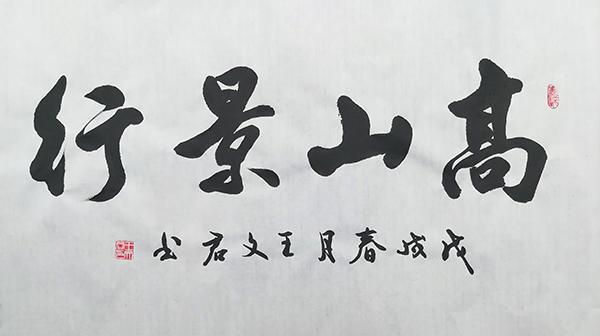 髙山景行
戊戌春月王文君书